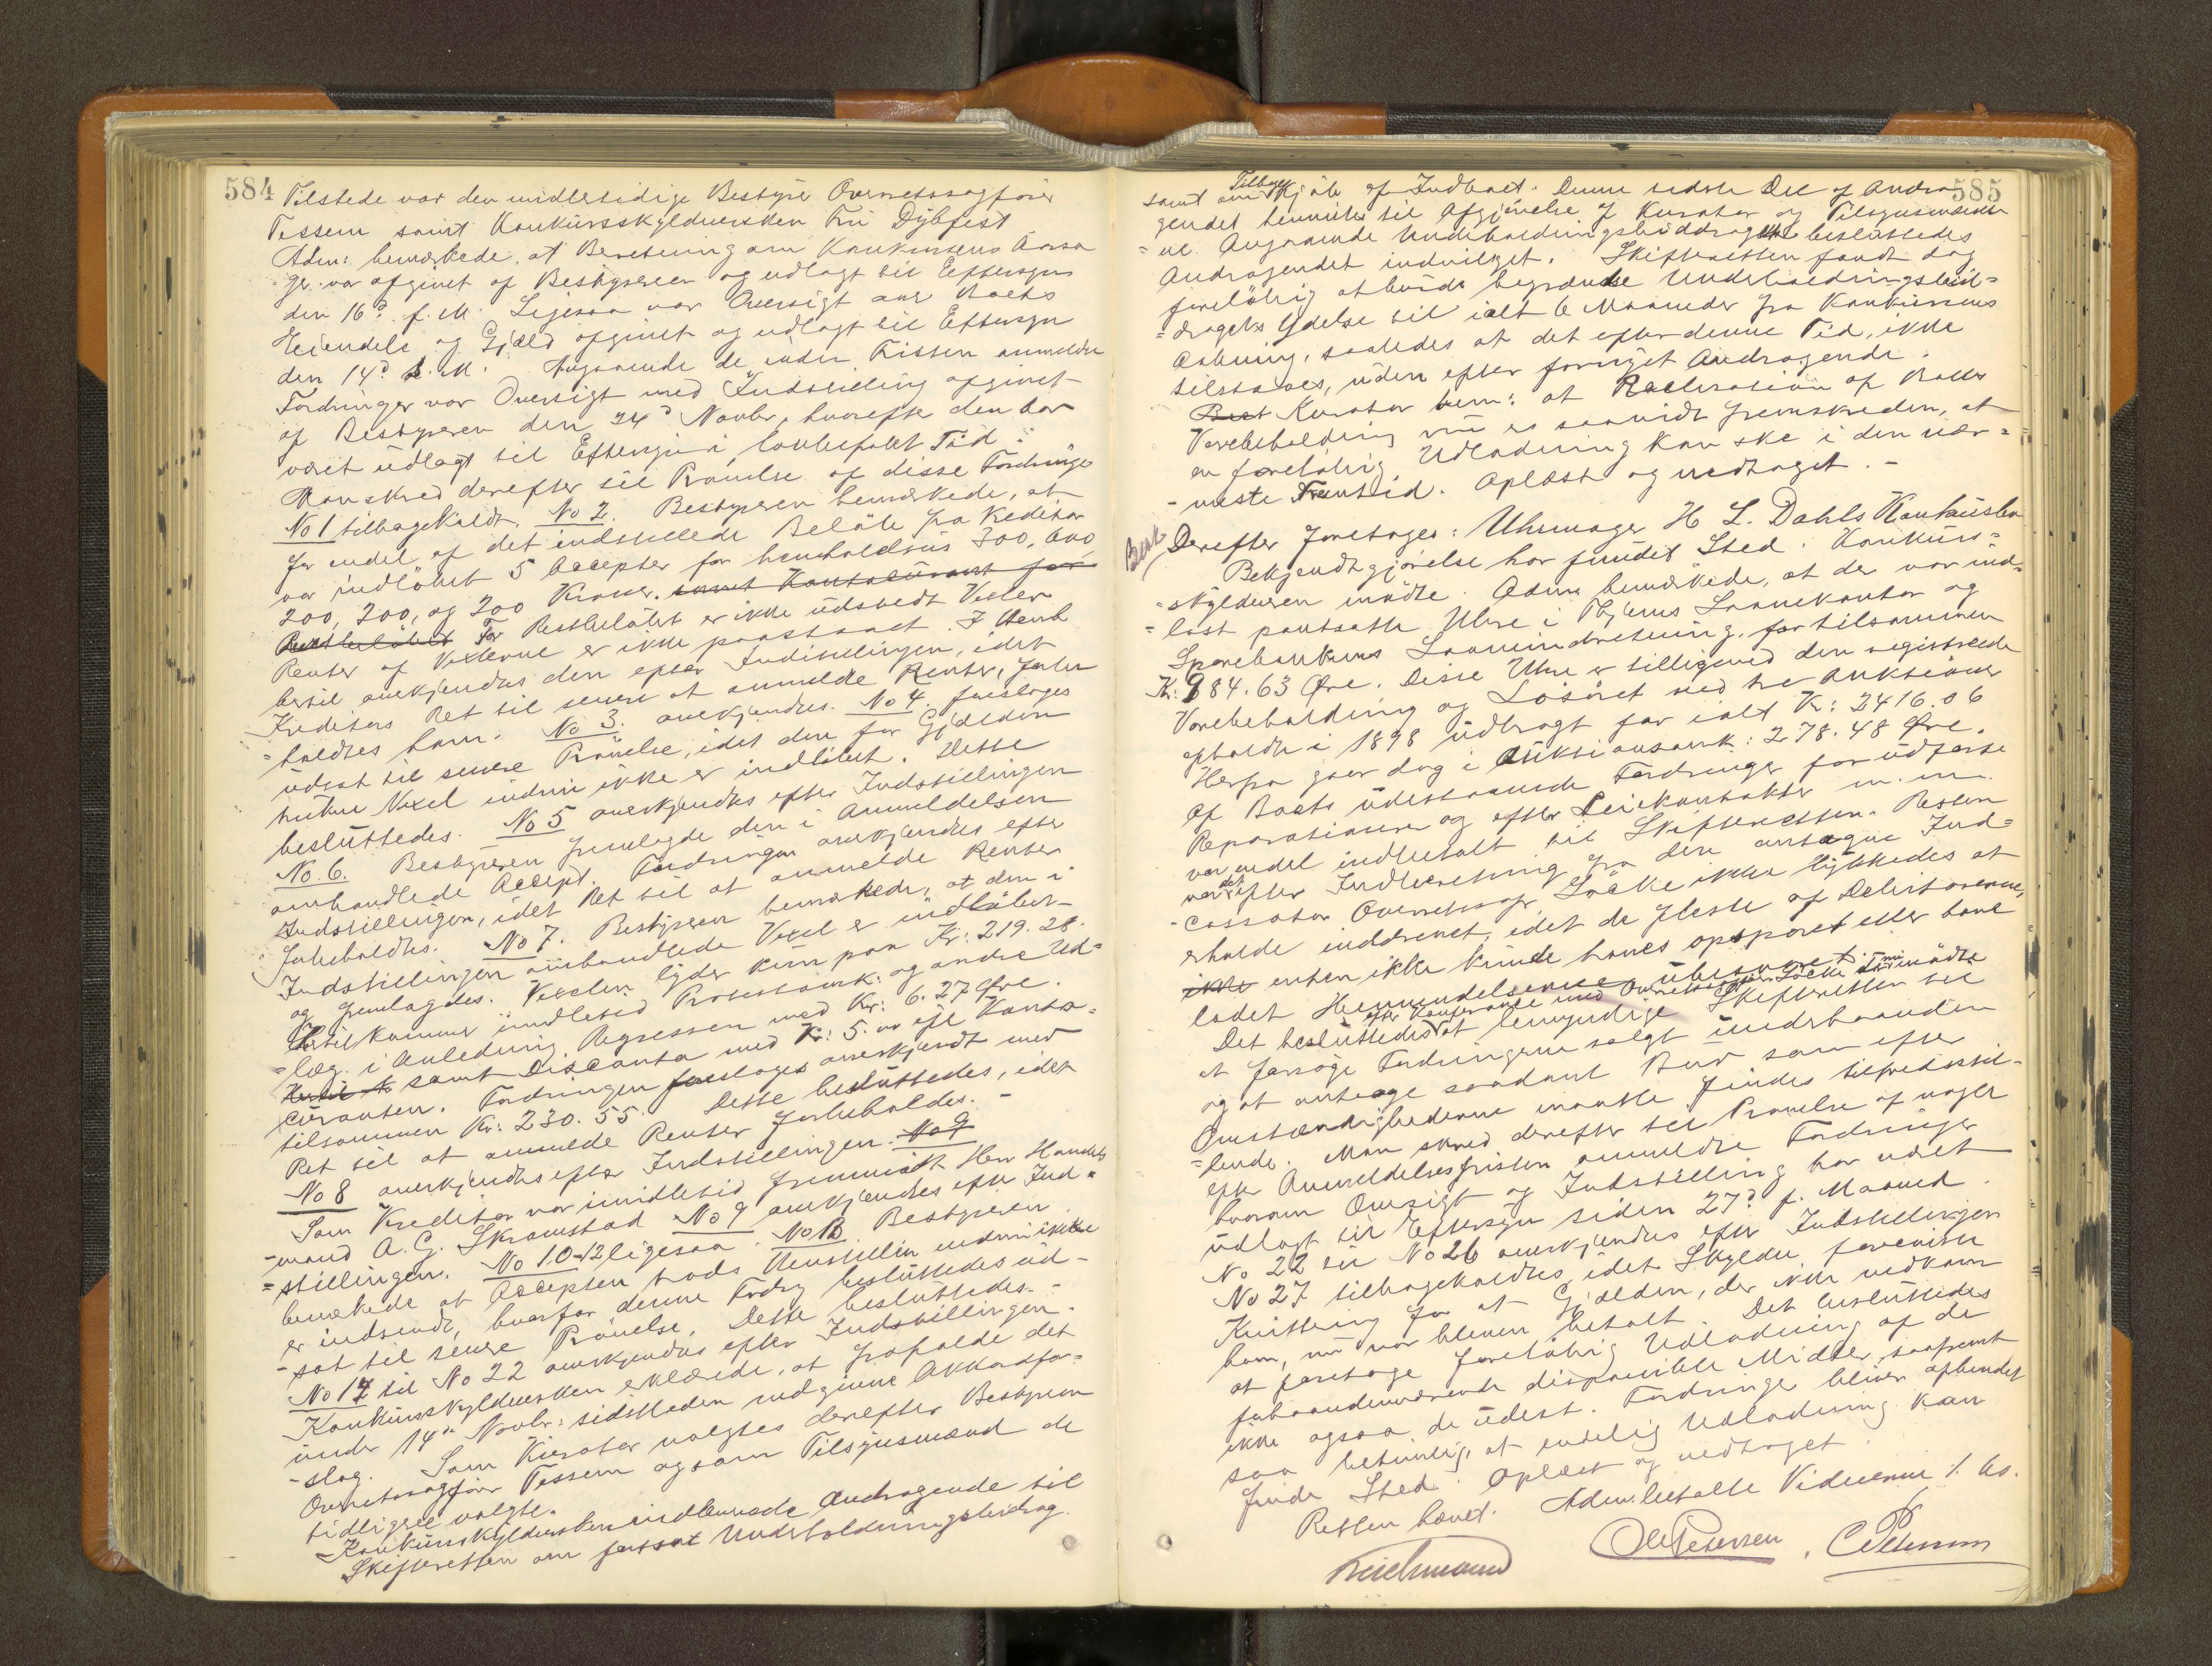 584
Tilstede var den midlertidige Bestyrer Overretssagfører
Tessem samt Konkursskyldnersken Fru Dybfest
Adm: bemærkede, at Beretning om Konkursens Aarsa
ger var afgivet af Bestyreren og udlagt til Eftersyn
den 16d f. M. Ligesaa var Oversigt over Boets
Eiendele og Gjæld afgivet og udlagt til Eftersyn
den 14d d. M. Angaaende de inden Fristen anmeldte
Fordringer var Oversigt med Indstilling afgivet
af Bestyreren den 24d Novbr, hvorefter den har
været udlagt til Eftersyn i lovbefalet Tid.
Man skred derefter til Prøvelse af disse Fordringer
No 1 tilbagekaldt. No 2. Bestyreren bemærkede, at
for endel af det indstillede Beløb fra Kreditor
var indløbet 5 Accepter for henholdsvis 300, 600
200, 200, og 200 Kroner. samt Kontocurant for
Restbeløbet For Restbeløbet er ikke udstedt Vexler
Renter af Vexlerne er ikke paastaaet. I Henh
hertil anerkjendtes den efter Indstillingen, idet
Kreditors Ret til senere at anmelde Renter, forbe
=holdtes ham. No 3. anerkjendtes. No 4. foresloges
udsat til senere Prøvelse, idet den for Gjælden
trukne Vexel endnu ikke er indløbet. Dette
besluttedes. No 5 anerkjendtes efter Indstillingen
No. 6. Bestyreren fremlagde den i Anmeldelsen
omhandlede Accept. Fordringen anerkjendtes efter
Indstillingen, idet Ret til at anmelde Renter
forbeholdtes. No 7. Bestyreren bemærkede, at den i
Indstillingen omhandlede Vexel er indløbet
og fremlagdes. Vexelen lyder kun paa Kr: 219.28.
Hertil kommer imidlertid Protestomk: og andre Ud=
=læg i Anledning Regressen med Kr: 6.27 Øre.
Hertil k samt Disconto med Kr: 5.00 efl Konto=
curanten. Fordringen foresloges anerkjendt med
tilsammen Kr: 230.55. Dette besluttedes, idet
Ret til at anmelde Renter forbeholdes. -
No 8 anerkjendtes efter Indstillingen. No 9
Som Kreditor var imidlertid fremmødt Herr Handels
-mand A. G. Skramstad No 9 anerkjendtes efter Ind=
=stillingen. No 10-12 ligesaa. No 13. Bestyreren
bemærkede at Accepten trods Henstillin endnu ikke
er indsendt, hvorfor denne Fordrg besluttedes ud-
-sat til senere Prøvelse. Dette besluttedes.-
No 14 til No 22 anerkjendtes efter Indstillingen.
Konkursskyldnersken erklærede, at frafalde det
under 14de Novbr: sidstleden indgivne Akkordfor=
-slag. Som Kurator valgtes derefter Bestyreren
Overretssagfører Tessem og som Tilsynsmænd de
tidligere valgte.
Konkursskyldnersken indleverede Andragende til
Skifteretten om fortsat Underholdningsbidrag
585
Tilbage
samt om kjøb af Indboet. Denne sidste Del af Andra
gendet henvistes til Afgjørelse af Kurator og Tilsynsmænde
=ne. Angaaende Underholdningsbiddraget besluttedes
Andragendet indvilget. Skifteretten fandt dog
foreløbig at burde begrændse Underholdningsbid=
=dragets Ydelse til ialt 6 Maaneder fra Konkursens
Aabning, saaledes at det efter denne Tid, ikke
tilstaaes, uden efter fornyet Andragende.
Boet Kurator bem: at Realisation af Boets
Varebeholdning nu er saavidt fremskreden, at
en foreløbig Udlodning kan ske i den nær=
-meste Fremtid. Oplæst og vedtaget. -
Derefter foretoges: Uhrmager H L. Dahls Konkursbo
Bekjendtgjørelse har fundet Sted. Konkurs=
=skyldneren mødte. Adm: bemærkede, at der var ind=
=løst pantsatte Uhre i Thjems Laanekontor og
Sparebankens Laaneindretning for tilsammen
Kr: 984.63 Øre. Disse Uhre er tilligemed den registrerede
Varebeholdning og Løsøret ved tre Auktioner
afholdte i 1898 udbragt for ialt Kr: 2416.06
Herfra gaar dog i Auktionsomk: 278.48 Øre.
Af Boets udestaaende Fordringer for udførte
Reparationer og efter Leiekontrakter m.m.
var endel indbetalt til Skifteretten. Resten
var det efter Indberetning fra den antagne Ind=
-cassator Overretssagf. Løcke ikke lykkedes at
erholde inddrevet, idet de fleste af Debitorerne,
ikke enten ikke kunde traves opsporet eller have
ladet Henvendelserne ubesvaret.
efter Konferance med Overretssagfører Løcke som nu mødte
Det besluttedes at bemyndige Skifteretten til
at forsøge Fordringerne solgt underhaanden
og at antage saadant Bud som efter
Omstændighederne maatte findes tilfredsstil-
=lende. Man skred derefter til Prøvelse af nogle
efter Anmeldelsesfristen anmeldte Fordringer
hvorom Oversigt og Indstilling har været
udlagt til Eftersyn siden 27d f. Maaned.
No 22 til No 26 anerkjendtes efter Indstillingen
No 27 tilbagekaldtes, idet Skyldn foreviste
Kvittering for at Gjælden, der ikke vedkom
ham, nu var bleven betalt. Det besluttedes
at foretage foreløbig Udlodning af de
forhaandenværende disponible Midler, saafremt
ikke ogsaa de udest. Fordringer bliver afhendet
saa betimelig, at endelig Udlodning kan
finde Sted. Oplæst og vedtaget.
Retten hævet. Adm: betalte Vidnerne
Ole Petersen C Petersen